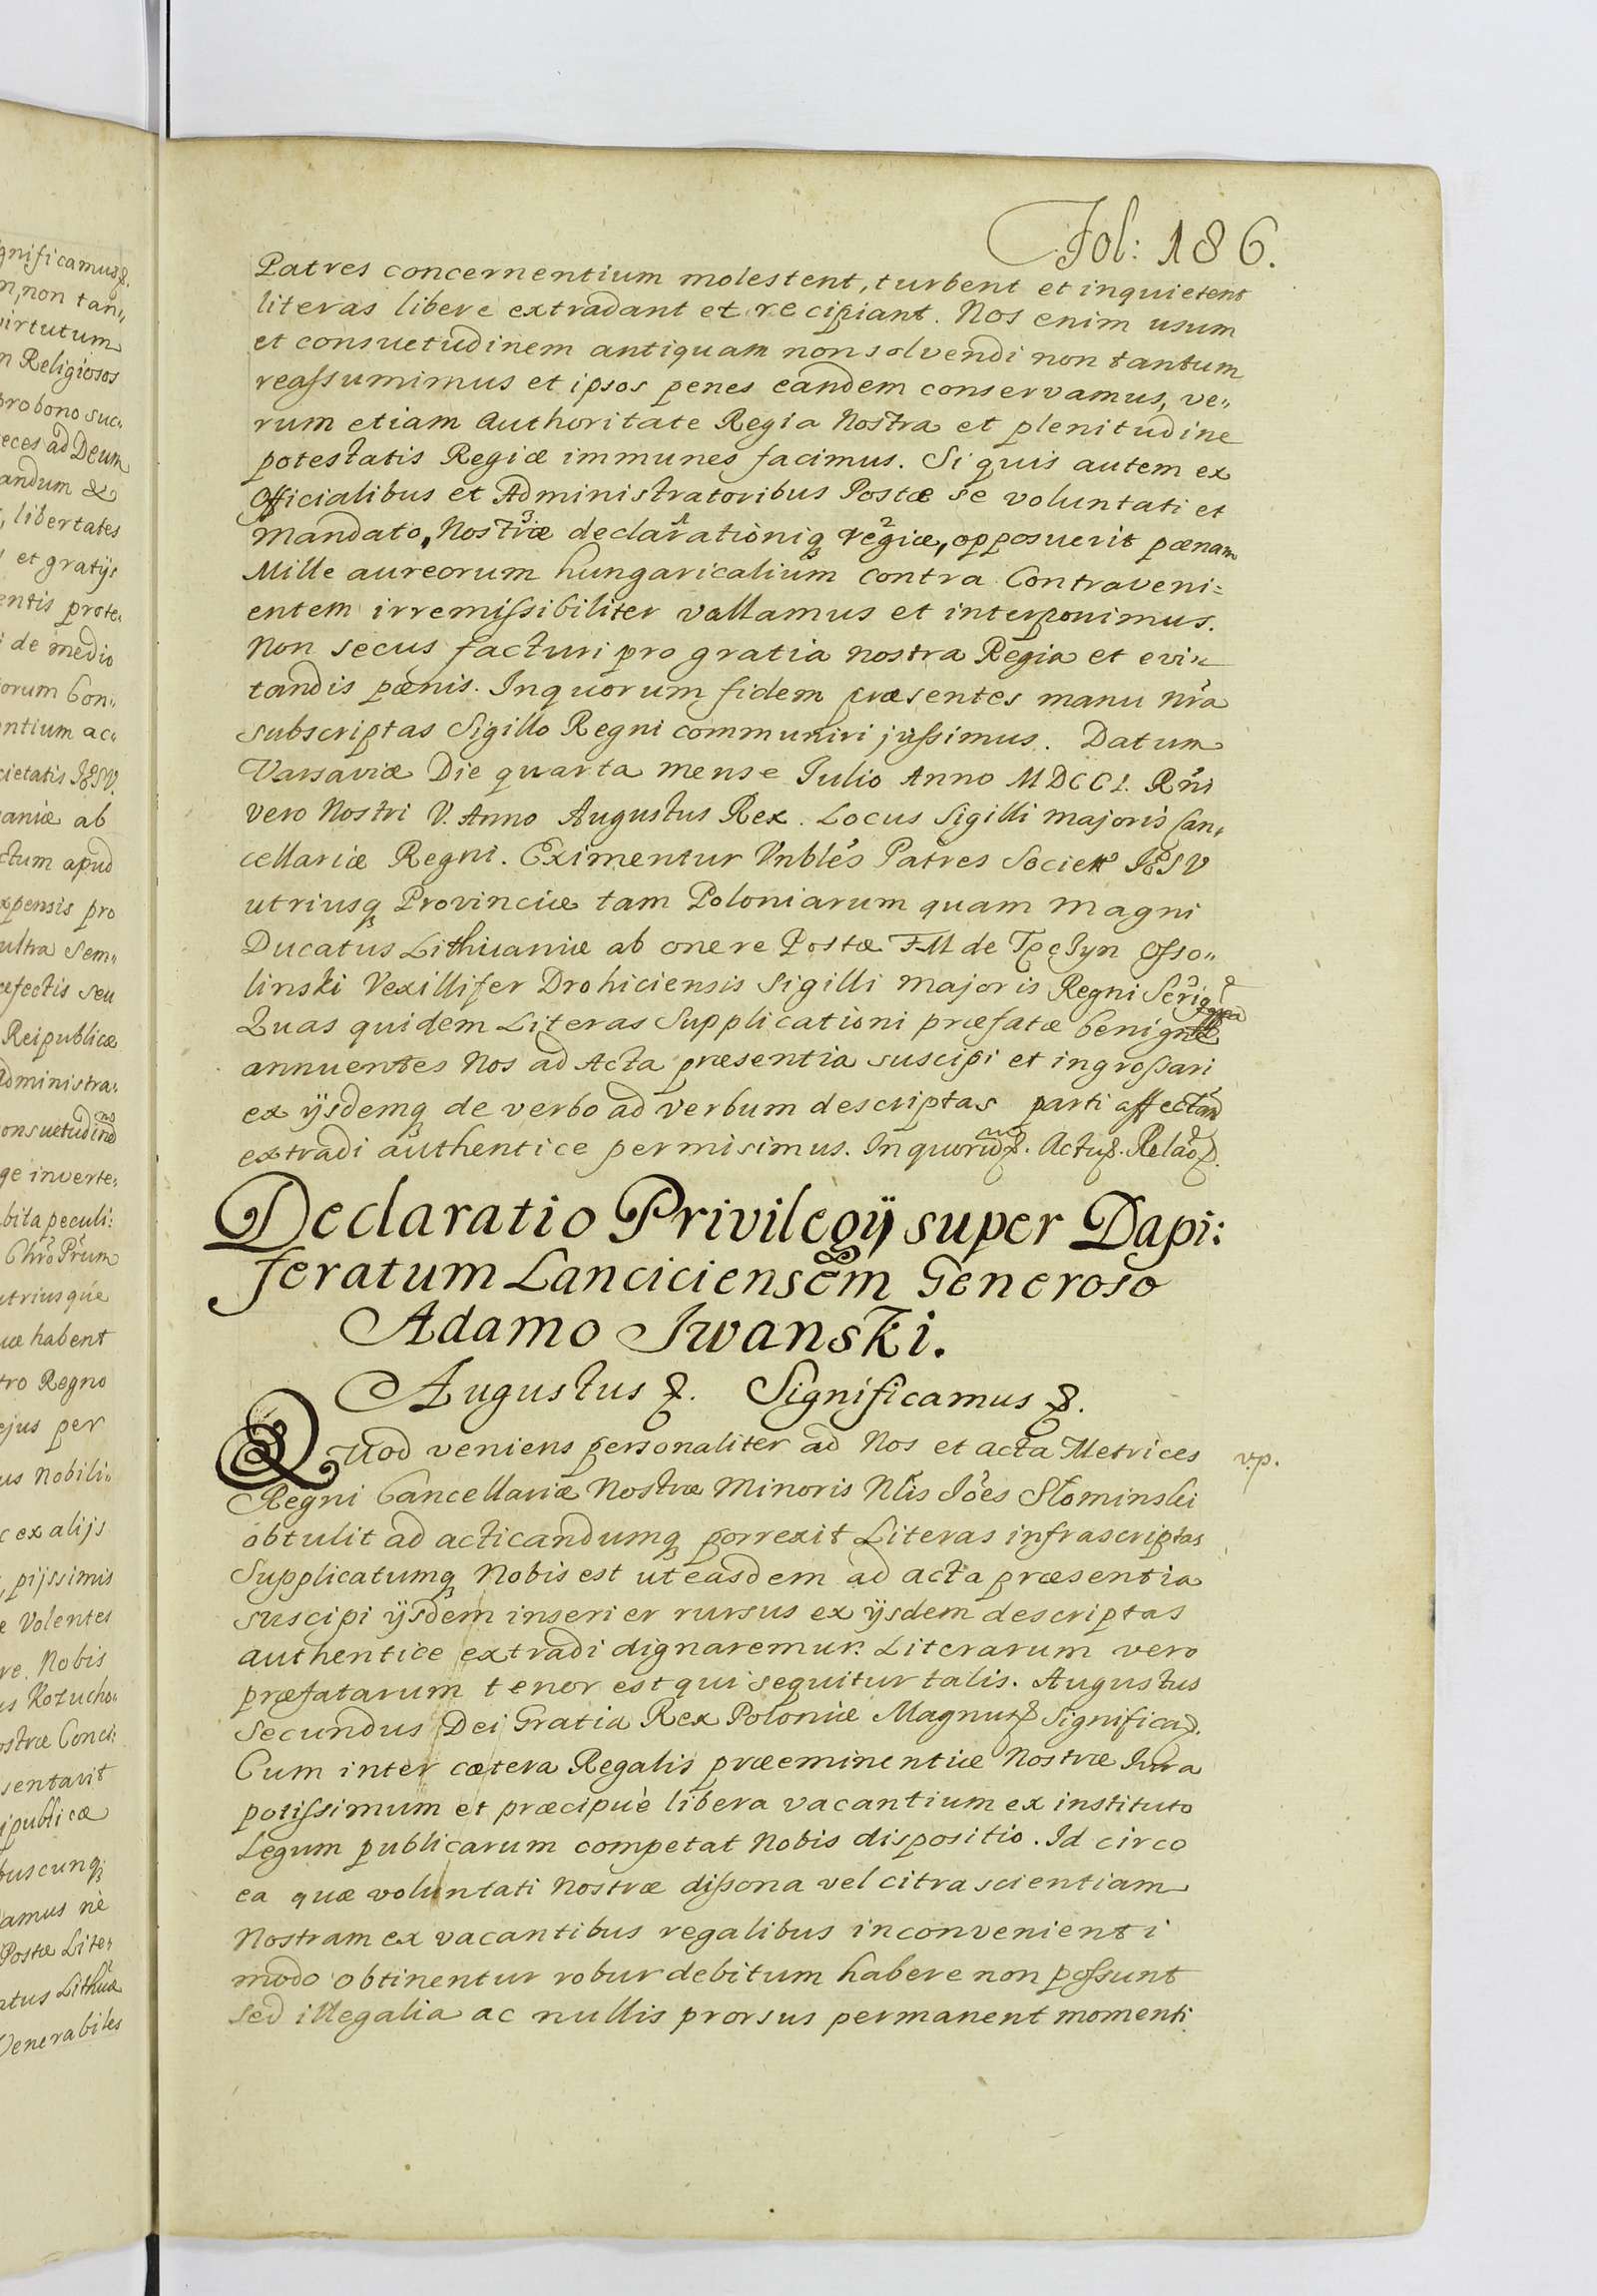 Fol: 186.
Patres concernentium molestent, turbent et inquietent
literas libere extradant et recipiant. Nos enim usum
et consvetudinem antiquam non solvendi non tantum
reassumimus et ipsos penes eandem conservamus, ve„
rum etiam Authoritate Regia Nostra et plenitudine
potestatis Regiæ immunes facimus. Si quis autem ex
Officialibus et Administratoribus Postæ se voluntati et
Mandato, Nostræ declarationiq regiæ, opposuerit pænam
Mille aureorum hungaricalium contra Contraveni=
entem irremissibiliter vallamus et interponimus.
Non secus facturi pro gratia nostra Regia et evi„
tandis pænis. In quorum fidem præsentes manu nra
subscriptas Sigillo Regni communiri jussimus. Datum
Varsaviæ Die quarta mense Julio Anno MDCCI. Rni
vero Nostri V. Anno Augustus Rex. Locus Sigilli majoris Can„
cellariæ Regni. Eximentur Vnbles Patres Societt JESV
utriusq Provinciæ tam Poloniarum quam Magni
Ducatus Lithvaniæ ab onere Postæ FM de Tęczyn Osso„
linski Vexillifer Drohiciensis Sigilli majoris Regni
Quas quidem Literas Supplicationi præfatæ benigne
annuentes Nos ad Acta præsentia suscipi et ingrossari
ex ijsdemq de verbo ad verbum descriptas parti affectan
extradi authentice permisimus. In quorum &. Actu &. Relao &.
Declaratio Privilegij super Dapi:
feratum Lanciciensem Generoso
Adamo Iwanski.
Augustus &. Significamus &.
Quod veniens personaliter ad Nos et acta Metrices
v.p.
Regni Cancellariæ Nostræ Minoris Nlis Joes Słominski
obtulit ad acticandumq porrexit Literas infrascriptas
Supplicatumq Nobis est ut easdem ad acta præsentia
suscipi ijsdem inseri er rursus ex ijsdem descriptas
authentice extradi dignaremur. Literarum vero
præfatarum tenor est qui sequitur talis. Augustus
Secundus Dei Gratia Rex Poloniæ Magnus &
Cum inter cætera Regalis præeminentiæ Nostræ Jura
potissimum et præcipuè libera vacantium ex instituto
Legum publicarum competat Nobis dispositio. Id circo
ea quæ voluntati Nostræ dissona vel citra scientiam
Nostram ex vacantibus regalibus inconvenienti
modo obtinentur robur debitum habere non possunt
sed illegalia ac nullis prorsus permanent momenti